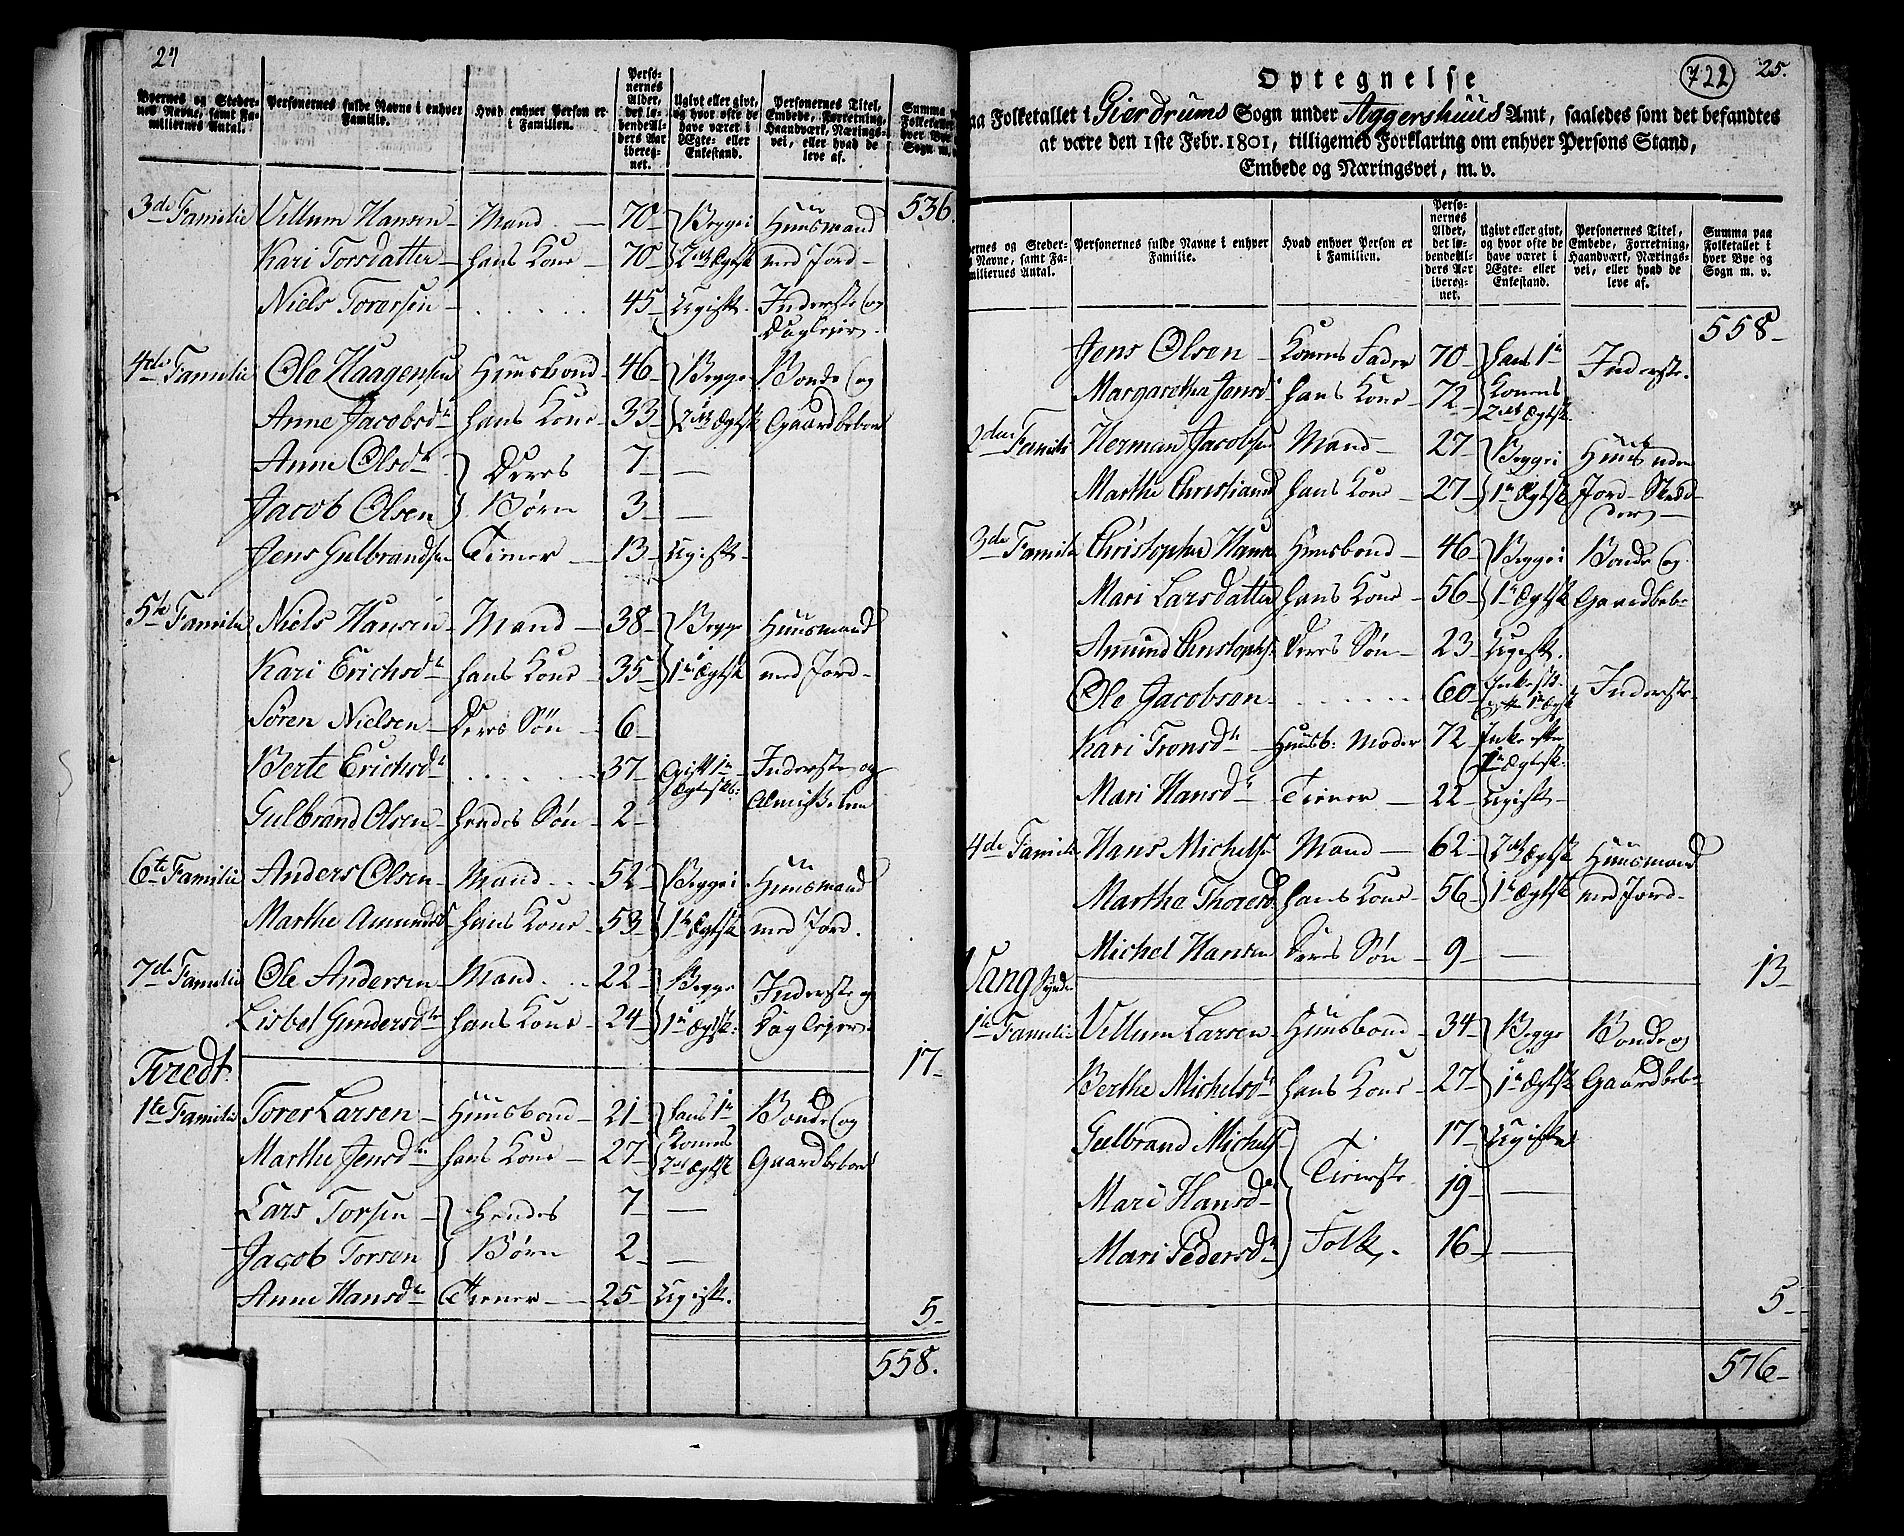 24
Byernes og Steder-
nes Navne, samt Fa-
miliernes Antal.
Personernes fulde Navne i enhver
Familie.
Hvad enhver Person er
i Familien.
Perso-
nernes
Alder,
det lø-
bendeAl-
ders Aar
ibereg-
net.
Ugivt eller givt,
og hvor ofte de
have været i
Ægte- eller
Enkestand.
Personernes Titel,
Embede, Forretning,
Haandværk, Nærings-
vei, eller hvad de
leve af.
Summa
Folketallet
hver Bye
Sogn m. v.
3de Familie Villum Hansen - Mand - 70 - Begge i Huusmand 536.
Kari Torsdatter - hans Kone - 70 - 2det Ægtsk med Jord -
Niels Torersen - 45 - Ugift. Inderste og
Dagleier.
4de Familie Ole Haagensen Huusbond - 46 - Begge Bonde og
Anne Jacobsdr hans Kone - 33 - 2det Ægtsk Gaardbeboer
Anne Olsdr Deres 7 -
Jacob Olsen Børn 3 -
Jens Gulbrandsen Tiener - 13 - Ugift -
5te Familie Niels Hansen - Mand - 38 - Begge Huusmand
Kari Erichsdr hans Kone - 35 - 1te Ægtsk med Jord -
Sören Nielsen - Deres Søn - 6 -
Berte Erichsdr - 37 - Ugift Inderste og
Gulbrand Olsen - hendes Søn - 2 -
6te Familie Anders Olsen - Mand - 52 - Begge i Huusmand
Marthe Amundsdr hans Kone - 53 - 1te Ægtsk med Jord.
7de Familie Ole Andersen - Mand - 22 - Begge Inderste og
Lisbet Gundersdtr hans Kone - 24 - 1te Ægtsk. Dagleier -
17 -
1te Familie Torer Larsen - Huusbond - 21 - hans 1te Bonde og
Marthe Jensdr hans Kone - 27 - Konens
2det Ægtsk Gaardbeboer
Lars Torsen - hendes 7 -
Jacob Torsen Børn 2 -
Anne Hansdr Tiener - 25 - Ugift.
5 -
558.
722
25.
Optegnelse
paa Folketallet i Gierdrums Sogn under Aggershuus Amt, saaledes som det befandtes
at være den 1ste Febr. 1801, tilligemed Forklaring om enhver Persons Stand,
Embede og Næringsvei, m. v.
ernes og Steder-
Navne, samt Fa-
miliernes Antal.
Personernes fulde Navne i enhver
Familie.
Hvad enhver Person er
i Familien.
Perso-
nernes
Alder,
det lø-
bendeAl-
ders Aar
ibereg-
net.
Ugivt eller givt,
og hvor ofte de
have været i
Ægte- eller
Enkestand.
Personernes Titel,
Embede, Forretning,
Haandværk, Nærings-
vei, eller hvad de
leve af.
Summa paa
Folketallet i
hver Bye og
Sogn m. v.
558 -
Jens Olsen - Konens Fader 70 - hans 1te Inderste.
Margaretha Jensdr hans Kone - 72 - Konens
2det Ægtsk
2den Familie Herman Jacobsen Mand - 27 - Begge i Huus uden
Marthe Christiansd hans Kone - 27 - 1te Ægtsk Jord -
3de Familie Christopher Hansen Huusbond - 46 - Begge i Bonde og
Mari Larsdatter hans Kone - 56 - 1te Ægtsk Gaardbeb -
Amund Christophs. Deres Søn - 23 - Ugift.
Ole Jacobsen - 60 - Inderste -
Kari Tronsdr - Huusb: Moder 72
1te Ægtsk.
Mari Hansdr - Tiener - 22 - Ugift -
4de Familie Hans Michelsen Mand - 62 - 2det Ægtsk Huusmand
Marthe Thoresd hans Kone - 56 - 1te Ægtsk med Jord -
Michel Hansen Deres Søn - 9 -
13 -
Vang
1te Familie Villum Larsen - Huusbond - 34 - Begge Bonde og
Berthe Michelsdr hans Kone - 27 - 1te Ægtsk Gaardbeb -
Gulbrand Michels. 17 - Ugifte
Mari Hansdr Tieneste 19 -
Mari Pedersdr Folk. 16 -
5 -
576 -